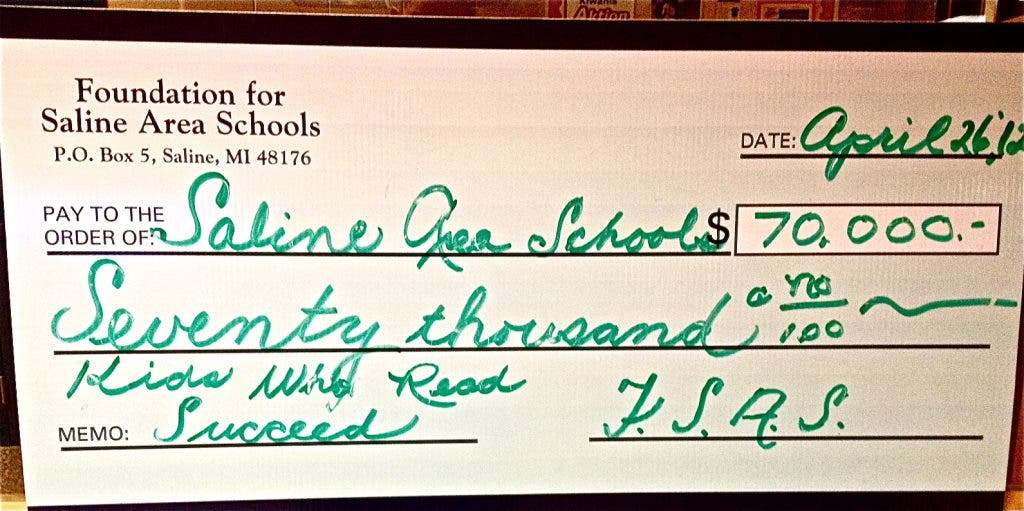 Kiwanis
Aktion
Foundation for
Saline Area Schools
P.O. Box 5, Saline, MI 48176
DATE: April 26, 12
PAY TO THE
ORDER OF: Saline Area Schools $ 70.000.-
Seventy thousand a no/100
Kids Who Read
MEMO: Succeed F.S.A.S.